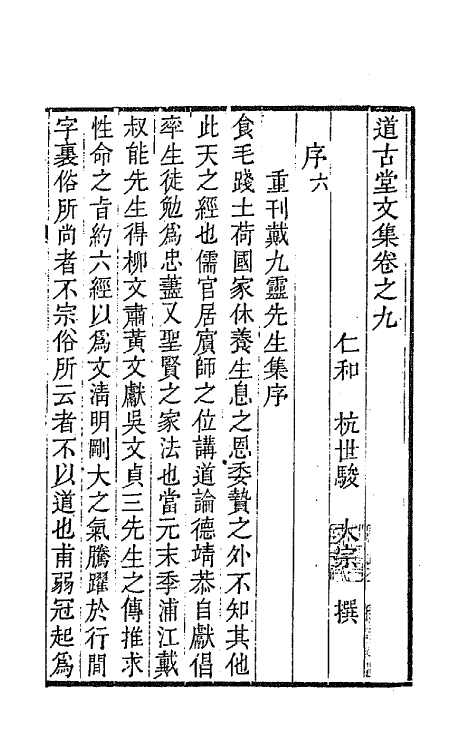 道古堂文集卷之九
仁和 杭世駿 大宗 撰
序六
重刊戴九靈先生集序
食毛踐土荷國家休養生息之恩委贄之外不知其他
此天之經也儒官居賔師之位講道論德靖恭自獻倡
率生徒勉為忠藎又聖賢之家法也當元末季浦江戴
叔能先生得柳文肅黃文獻吳文貞三先生之傳推求
性命之旨約六經以為文淸明剛大之氣騰躍於行間
字裏俗所尚者不宗俗所云者不以道也甫弱冠起為